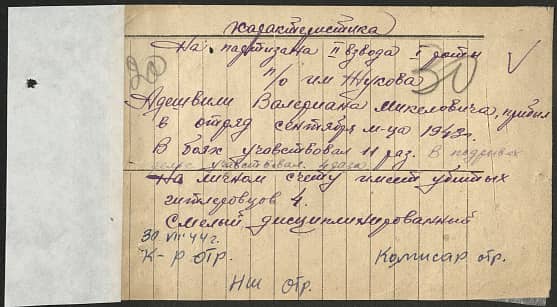 Характеристика
На партизана II взвода I роты
п/о им Жукова
20
30
Адешвили Валериана Микеловича, прибыл
в отряд сентября м-ца 1943 г.
В боях учавствовал 11 раз. В подрывах
учавствовал 4 раза.
На личном счету имеет убитых
гитлеровцов 4.
Смелый, дисциплинированный
30 VIII 44 г.
К-р отр. Комисар отр.
НШ отр.